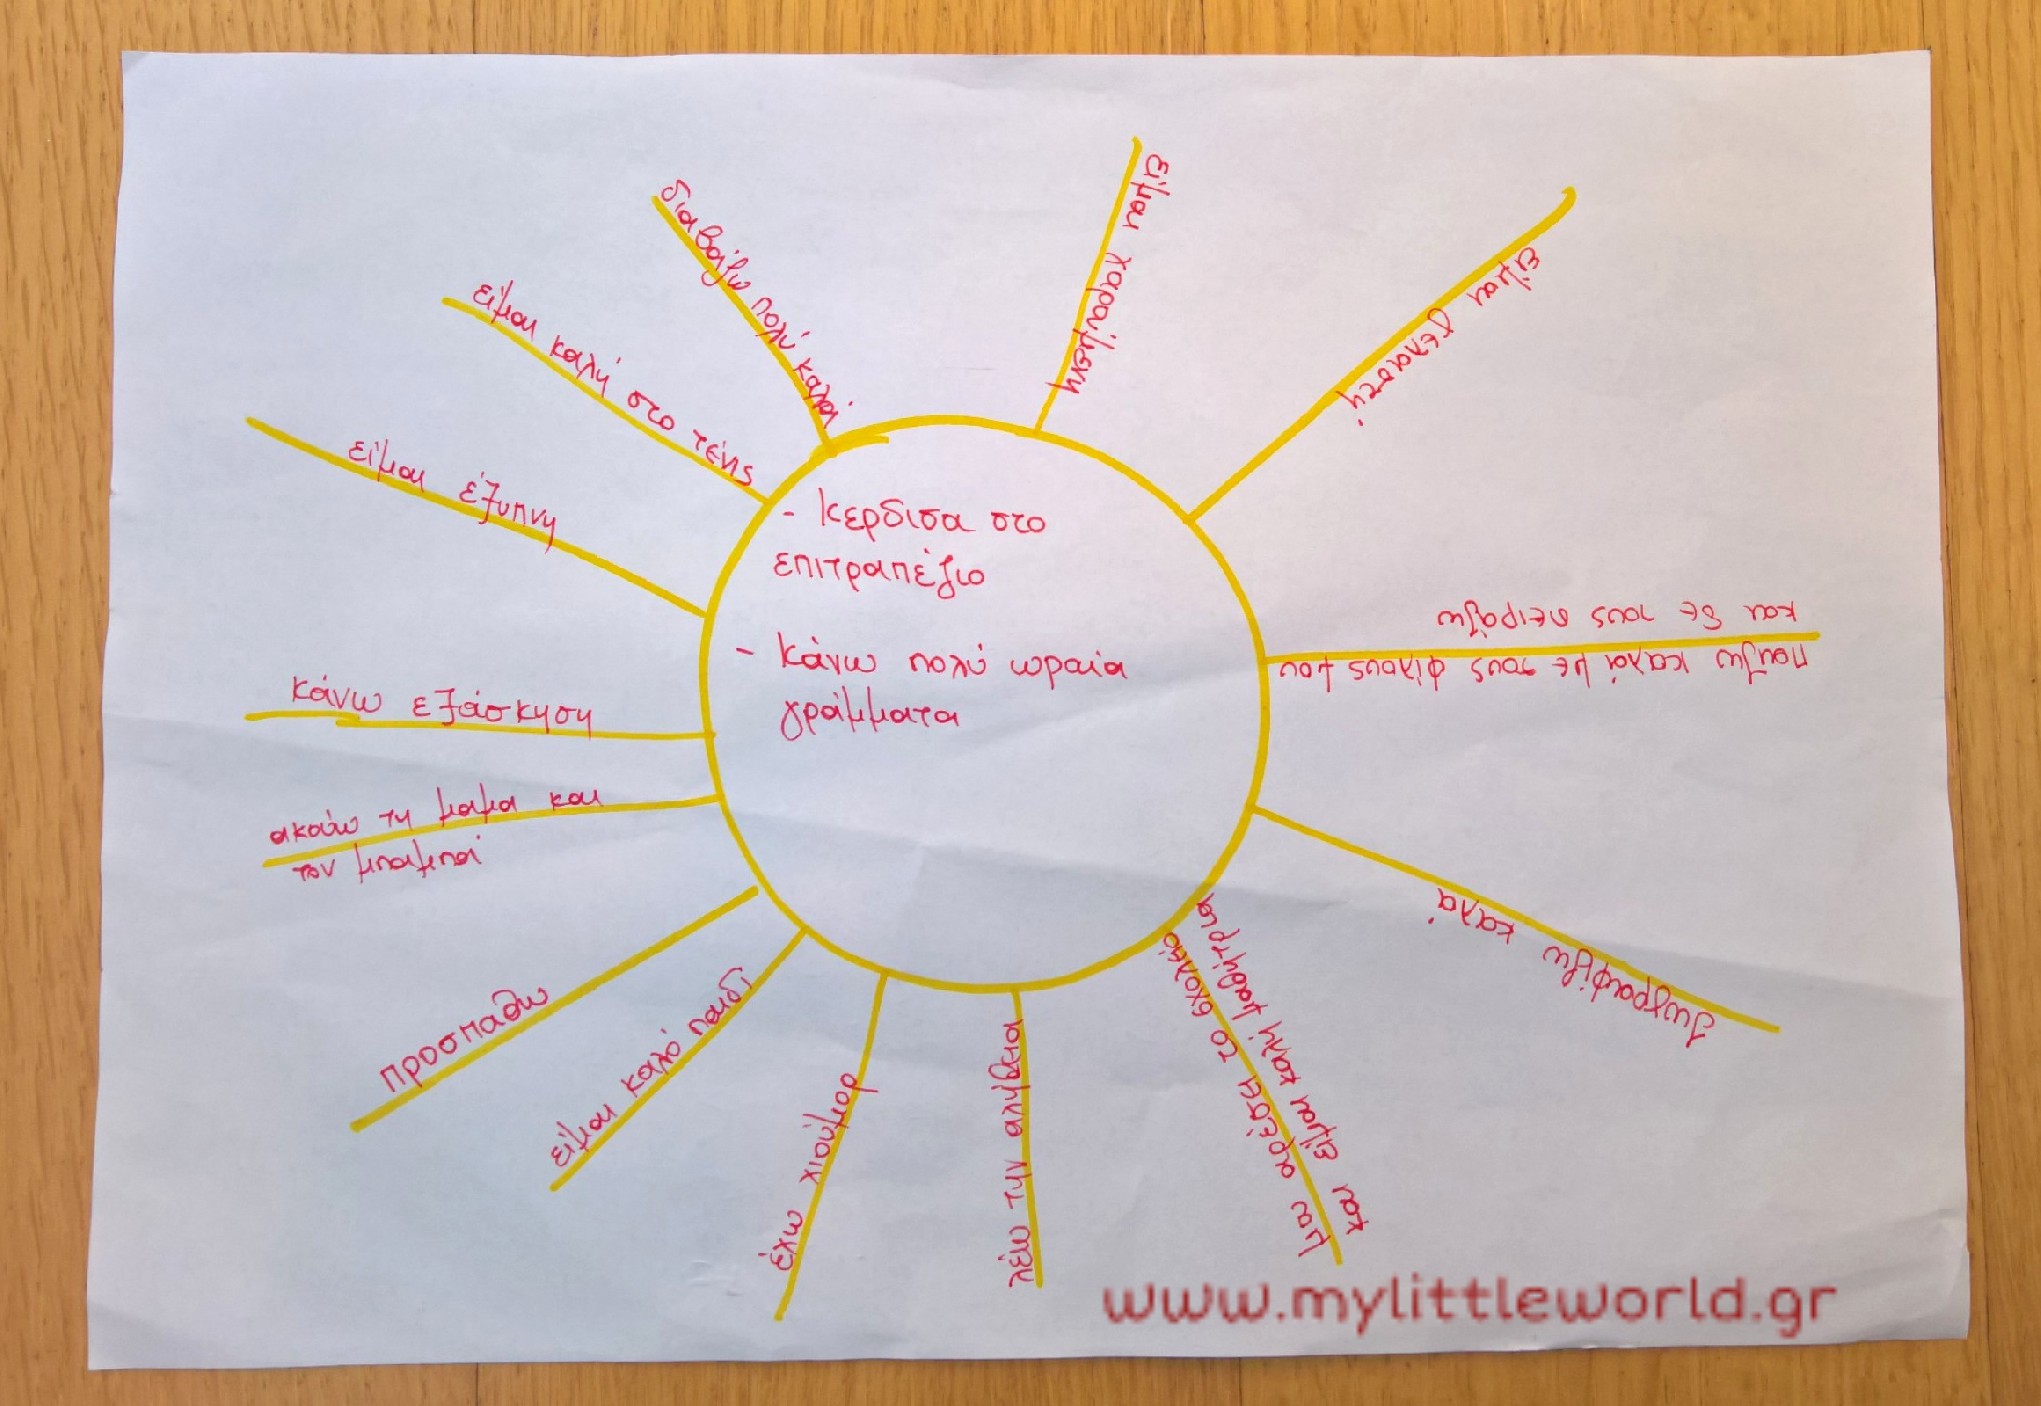 - Κερδισα στο
επιτραπέζιο
- Κάνω πολύ ωραία
γράμματα
είμαι χαρούμενη
είμαι γελαστή
και δε τους πειράζω
παίζω καλά με τους φίλους μου
ζωγραφίζω καλά
μου αρέσει το σχολείο
και είμαι καλή μαθήτρια
λέω την αλήθεια
έχω χιούμορ
είμαι καλό παιδί
προσπαθω
ακούω τη μαμα και
τον μπαμπά
κάνω εξάσκηση
είμαι έξυπνη
είμαι καλή στο τένις
διαβάζω πολύ καλά
www.mylittleworld.gr